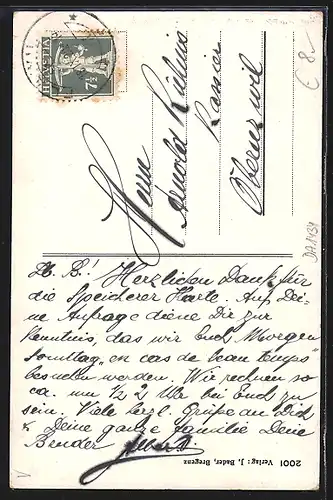 HELVETIA
7½
€ 8.-
Herrn
Arnold Kühnis
Kassier
Oberuzwil
DA1434
D. B.! Herzlichen Dank für
die Speicherer Karte. Auf Dei-
ne Anfrage diene Dir zur
Kenntnis, das wir Euch Morgen
Sonntag "en cas de beau temps"
besuchen werden. Wir rechnen so
ca. um ½ 2 Uhr bei Euch zu
sein. Viele herzl. Grüße an Dich
& Deine ganze Familie Deine
Bender Albert.
2001 Verlag: J. Bader, Bregenz